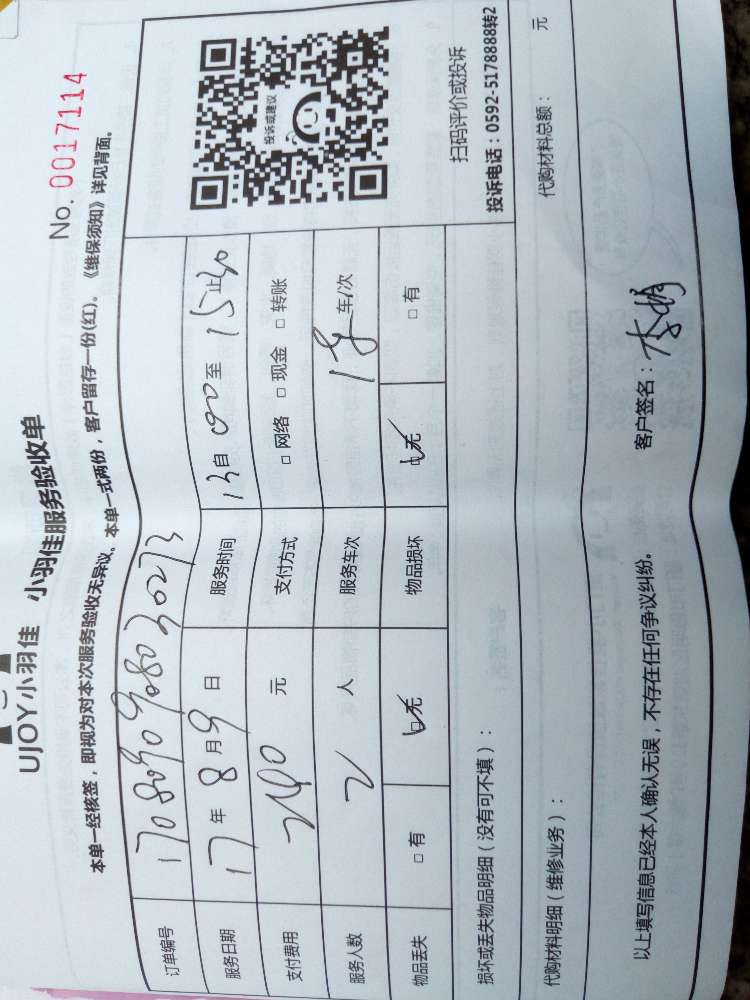 UJOY小羽佳 小羽佳服务验收单
No. 0017114
本单一经核签，即视为对本次服务验收无异议。本单一式两份，客户留存一份(红)。《维保须知》详见背面。
订单编号
服务日期 17年 8月 9日 服务时间 13自 00至 15止30
支付费用 240 元 支付方式 □网络 □现金 □转账
服务人数 2 人 服务车次 车/次
物品丢失 □有 ☑无 物品损坏 ☑无 □有
投诉或建议
扫码评价或投诉
投诉电话：0592-5178888转2
损坏或丢失物品明细（没有可不填）：
代购材料明细（维修业务）： 代购材料总额： 元
以上填写信息已经本人确认无误，不存在任何争议纠纷。 客户签名：